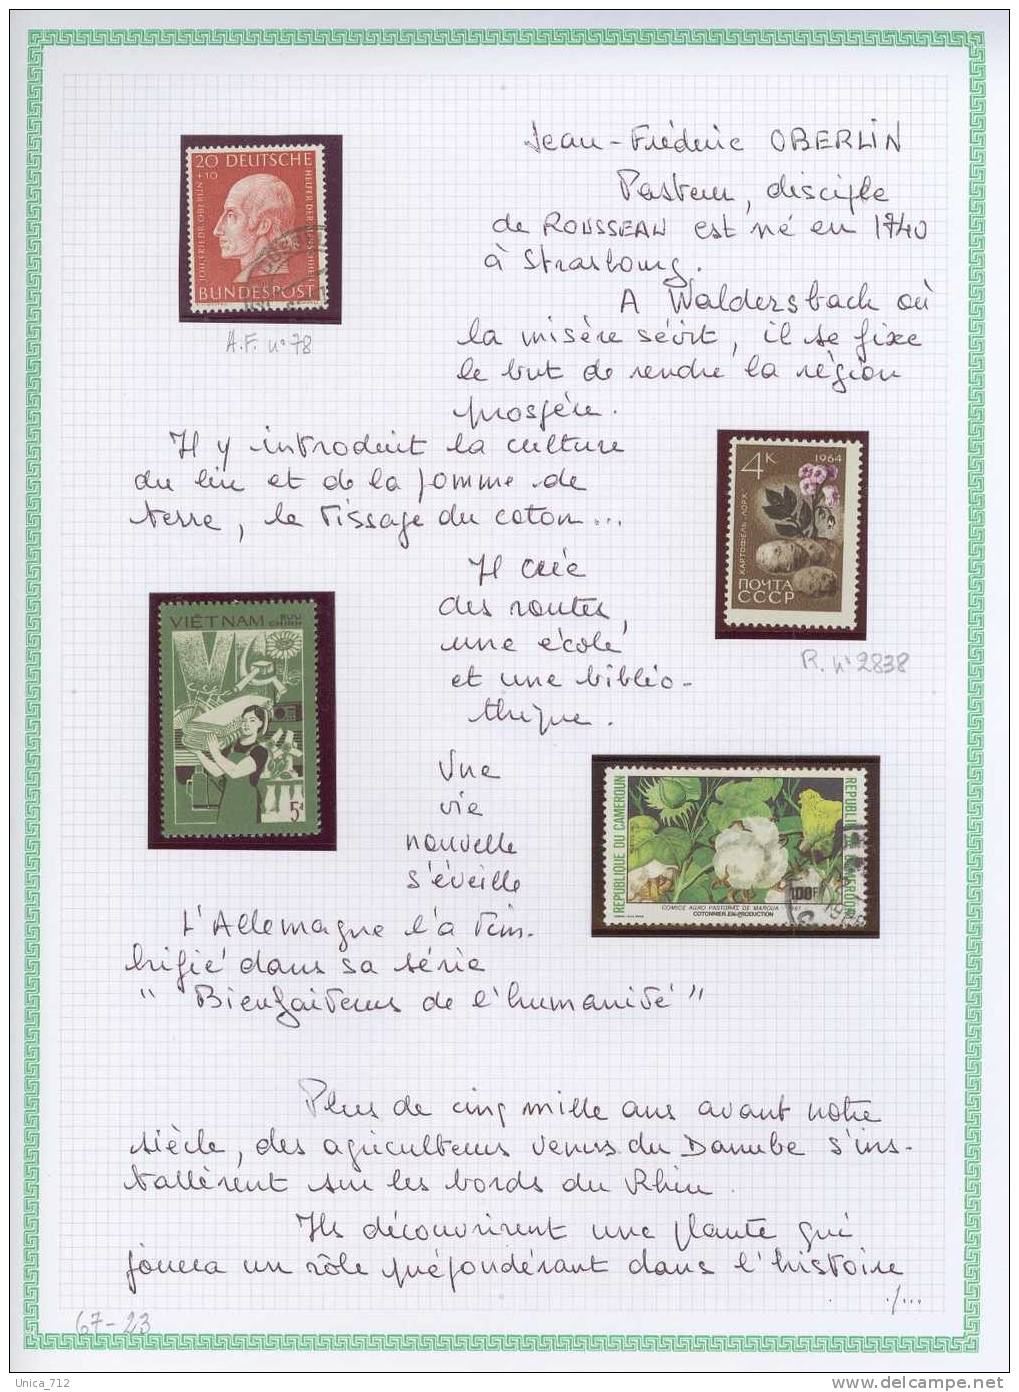 Jean-Fréderic OBERLIN
Pasteur, disciple
de ROUSSEAU est né en 1740
à Strasbourg.
A Waldersbach où
la misère sévit, il se fixe
le but de rendre la région
prospère.
20 DEUTSCHE
+10
JOH.FRIEDR.OBERLIN
HELFER DER MENSCHHEIT
BUNDESPOST
A.F. n° 78
Il y introduit la culture
du lin et de la pomme de
terre, le tissage du coton...
4K 1964
КАРТОФЕЛЬ ЛОРХ
ПОЧТА
СССР
R. n° 2838
Il crée
des routes,
une école
et une biblio-
thèque.
VIÊTNAM BUU
CHINH
5đ
Une
vie
nouvelle
s'éveille
REPUBLIQUE DU CAMEROUN
REPUBLIC OF CAMEROON
100F
COMICE AGRO PASTORAL DE MAROUA
COTONNIER EN PRODUCTION
L'Allemagne l'a tim-
brifié dans sa série
" Bienfaiteurs de l'humanité"
Plus de cinq mille ans avant notre
siècle, des agriculteurs venus du Danube s'ins-
tallèrent sur les bords du Rhin.
Ils découvrirent une plante qui
jouera un rôle prépondérant dans l'histoire
./...
67-23
Unica_712
delcampe.net